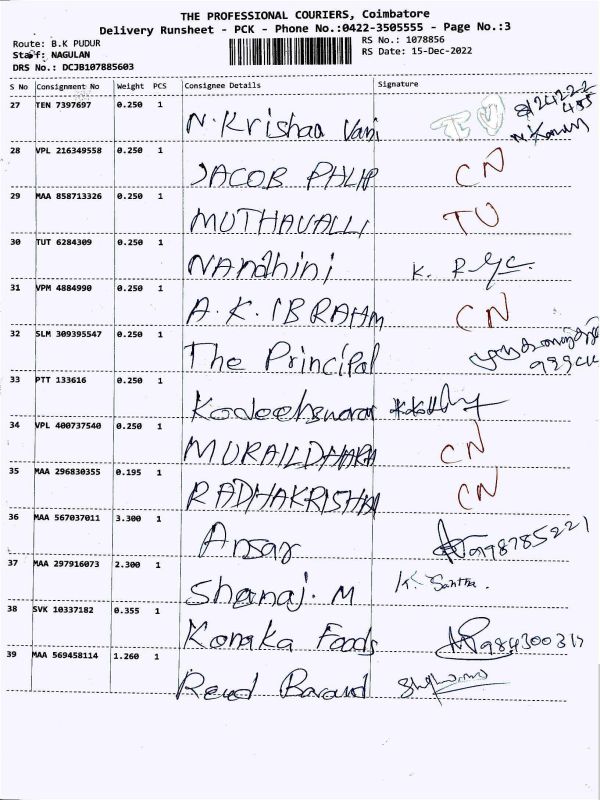 THE PROFESSIONAL COURIERS, Coimbatore
Delivery Runsheet - PCK - Phone No.:0422-3505555 - Page No.:3
Route: B.K PUDUR RS No.: 1078856
Staff: NAGULAN RS Date: 15-Dec-2022
DRS No.: DCJB107885603
S No Consignment No Weight PCS Consignee Details Signature
27 TEN 7397697 0.250 1 N. Krishna Vani
28 VPL 216349558 0.250 1 JACOB PHLIP CN
29 MAA 858713326 0.250 1 MUTHAVALLI TU
30 TUT 6284309 0.250 1 Nandhini K. R
31 VPM 4884990 0.250 1 A.K. IBRAHM CN
32 SLM 309395547 0.250 1 The Principal
33 PTT 133616 0.250 1
34 VPL 400737540 0.250 1 MURAILDHARA CN
35 MAA 296830355 0.195 1 RADHAKRISHNA CN
36 MAA 567037011 3.300 1 Ansar
37 MAA 297916073 2.300 1 Shanaj. M K. Santha.
38 SVK 10337182 0.355 1 Konaka Foods
39 MAA 569458114 1.260 1